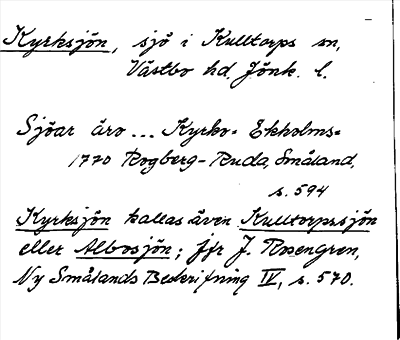 Kyrksjön, sjö i Kulltorps sn,
Västbo hd. Jönk. l.
Sjöar äro ... Kyrko- Ekholms-
1770 Rogberg-Ruda, Småland,
s. 594
Kyrksjön kallas även Kulltorpssjön
eller Albosjön; jfr J. Rosengren,
Ny Smålands Beskrifning IV, s. 570.